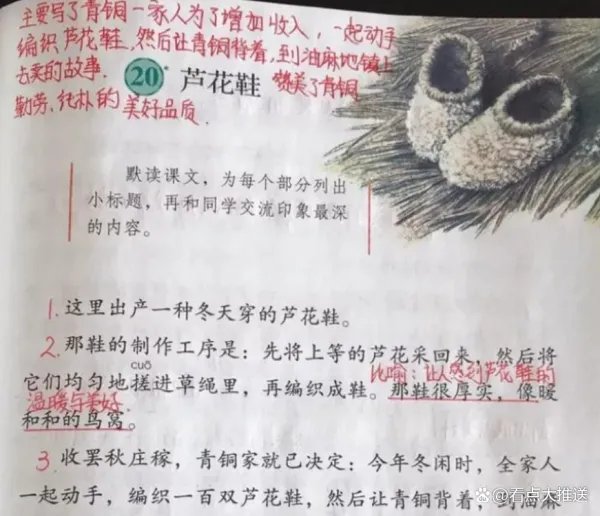 主要写了青铜一家人为了增加收入，一起动手
编织芦花鞋，然后让青铜背着，到油麻地镇上
去卖的故事．
赞美了青铜
勤劳、纯朴的美好品质．
20* 芦花鞋
默读课文，为每个部分列出
小标题，再和同学交流印象最深
的内容。
1.这里出产一种冬天穿的芦花鞋。
2.那鞋的制作工序是：先将上等的芦花采回来，然后将
cuō
它们均匀地搓进草绳里，再编织成鞋。那鞋很厚实，像暖
比喻：让人感到芦花鞋的
温暖与美好．
和和的鸟窝。
3.收罢秋庄稼，青铜家就已决定：今年冬闲时，全家人
一起动手，编织一百双芦花鞋，然后让青铜背着，到油麻
@看点大推送